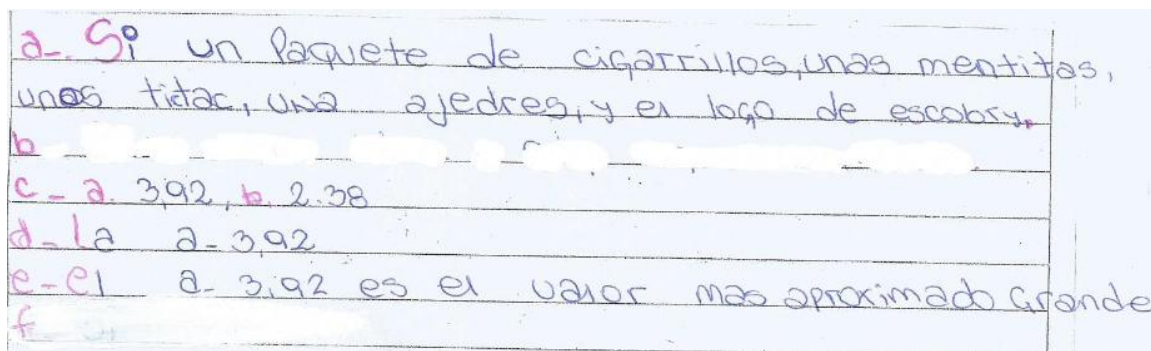 a-. Si un Paquete de cigarrillos, unas mentitas,
unos tictac, una ajedres, y el logo de escobry.
b
c - a. 3,92, b. 2.38
d - La a - 3,92
e - el a - 3,92 es el valor mas aproximado Grande
f